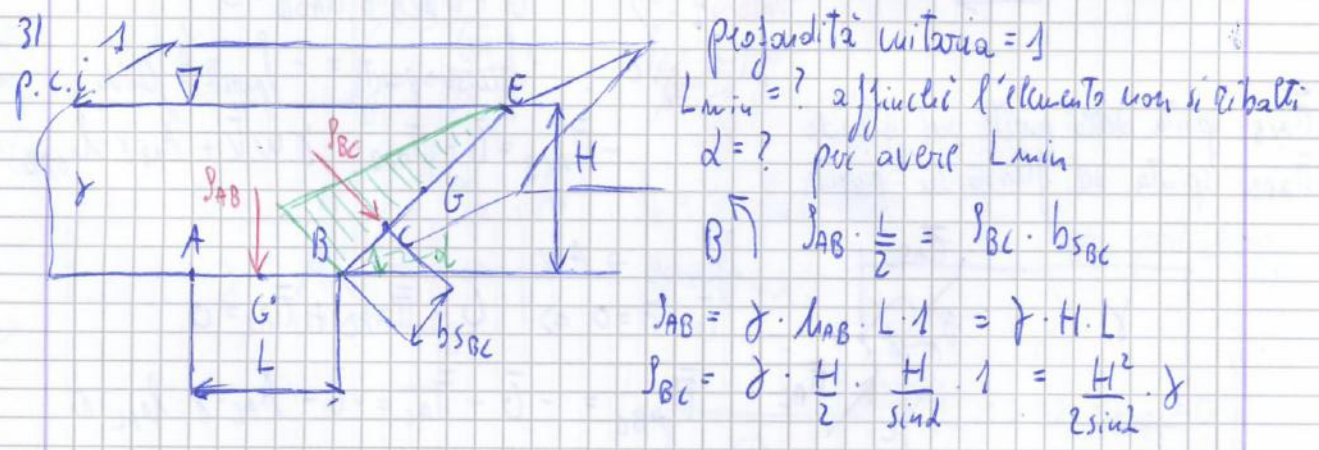 3) 1
p.c.i.
E
H
γ
S_AB
S_BC
G
A
B
C
α
G'
L
b_SBC
profondità unitaria = 1
Lmin = ? affinché l'elemento non si ribalti
α = ? per avere Lmin
B S_AB · L/2 = S_BC · b_SBC
S_AB = γ · h_AB · L · 1 = γ · H · L
S_BC = γ · H/2 · H/sinα · 1 = H²/2sinα · γ